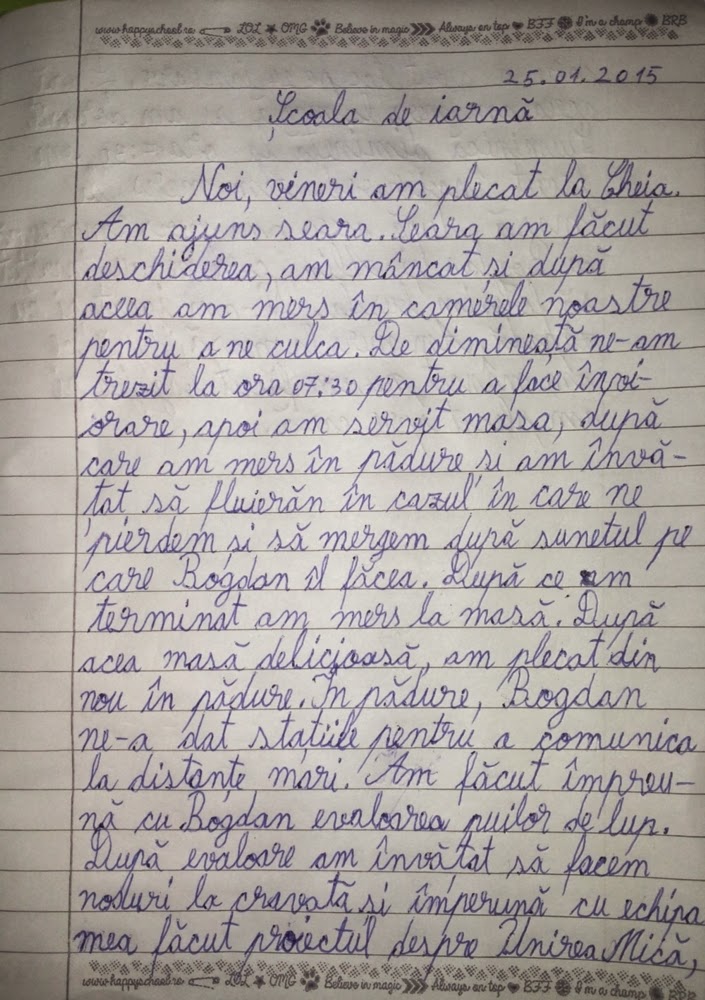 www.happyschool.ro LOL OMG Believe in magic Always on top BFF I'm a champ BRB
25.01.2015
Școala de iarnă
Noi, vineri am plecat la Cheia.
Am ajuns seara. Seara am făcut
deschiderea, am mâncat și după
aceea am mers în camerele noastre
pentru a ne culca. De dimineață ne-am
trezit la ora 07:30 pentru a face învi-
orare, apoi am servit masa, după
care am mers în pădure și am învă-
țat să fluierăn în cazul în care ne
pierdem și să mergem după sunetul pe
care Bogdan îl făcea. După ce am
terminat am mers la masă. După
acea masă delicioasă, am plecat din
nou în pădure. În pădure, Bogdan
ne-a dat stațiile pentru a comunica
la distanțe mari. Am făcut împreu-
nă cu Bogdan evaloarea puilor de lup.
După evaloare am învățat să facem
noduri la cravată și împerună cu echipa
mea făcut proiectul despre Unirea Mică,
www.happyschool.ro LOL OMG Believe in magic Always on top BFF I'm a champ BRB